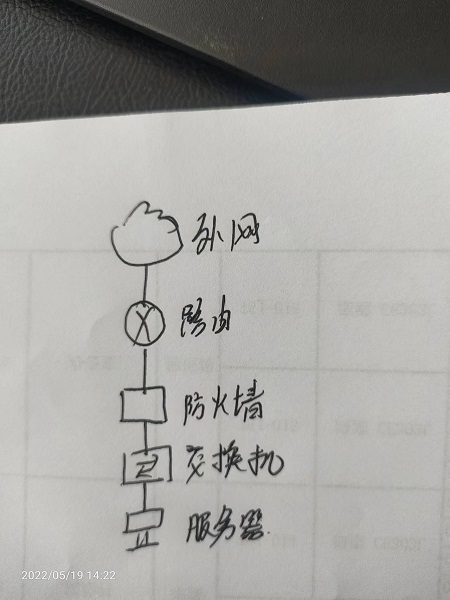 外网
路由
防火墙
交换机
服务器
2022/05/19 14:22